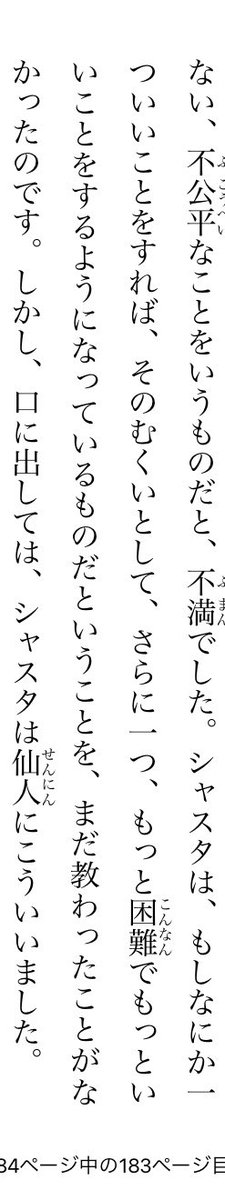 ない、不公平なことをいうものだと、不満でした。シャスタは、もしなにか一
ついいことをすれば、そのむくいとして、さらに一つ、もっと困難でもっとい
いことをするようになっているものだということを、まだ教わったことがな
かったのです。しかし、口に出しては、シャスタは仙人にこういいました。
84ページ中の183ページ目